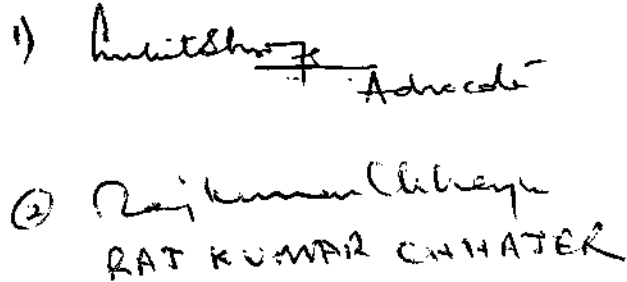 1)
Advocate
② Rajkumar Chhajer
RAJ KUMAR CHHAJER